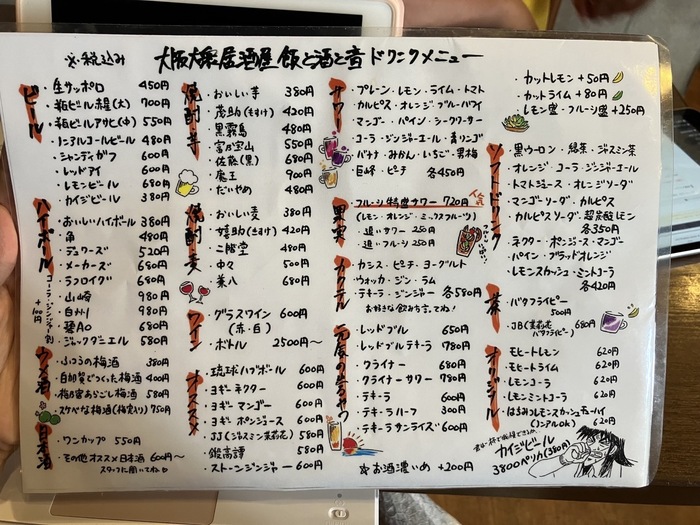 ※税込み 大阪大衆居酒屋 飯と酒と音 ドリンクメニュー
ビール
・生サッポロ 450円
・瓶ビール赤星(大) 700円
・瓶ビールアサヒ(中) 550円
・ノンアルコールビール 480円
・シャンディガフ 600円
・レッドアイ 600円
・レモンビール 680円
・カイジビール 380円
ハイボール
コーラ・ジンジャー割 +100円
・おいしいハイボール 380円
・角 480円
・デュワーズ 520円
・メーカーズ 680円
・ラフロイグ 680円
・山崎 980円
・白州 980円
・碧Ao 680円
・ジャックダニエル 580円
ウメ酒
・ふつうの梅酒 380円
・自加製でつくった梅酒 400円
・梅乃宿あらごし梅酒 580円
・スケベな梅酒(梅実入り) 750円
日本酒
・ワンカップ 550円
・その他オススメ日本酒 600円〜
スタッフに聞いてね♡
焼酎・芋
・おいしい芋 380円
・茂助(もすけ) 420円
・黒霧島 480円
・富乃宝山 550円
・佐藤(黒) 680円
・魔王 900円
・だいやめ 480円
焼酎・麦
・おいしい麦 380円
・嬉助(きすけ) 420円
・二階堂 480円
・中々 500円
・兼八 680円
ワイン
・グラスワイン 600円
(赤・白)
・ボトル 2500円〜
オススメ
・琉球ハブボール 600円
・ヨギーネクター 600円
・ヨギーマンゴー 600円
・ヨギーポンジュース 600円
・JJ(ジャスミン茉莉花) 580円
・鍛高譚 580円
・ストーンジンジャー 600円
サワー
・プレーン・レモン・ライム・トマト
・カルピス・オレンジ・ブルーハワイ
・マンゴー・パイン・シークワーサー
・コーラ・ジンジャーエール・青リンゴ
・バナナ・みかん・いちご・男梅
・巨峰・ピーチ 各450円
フルーツ特盛サワー 720円 人気
(レモン・オレンジ・ミックスフルーツ)
・追いサワー 250円
・追いフルーツ 250円
カクテル
・カシス・ピーチ・ヨーグルト
・ウォッカ・ジン・ラム
・テキーラ・ジンジャー 各580円
お好きな飲み方言ってね!
・レッドブル 650円
・レッドブルテキーラ 780円
・クライナー 680円
・クライナーサワー 780円
・テキーラ 600円
・テキーラハーフ 300円
・テキーラサンライズ 600円
☆お酒濃いめ +200円
・カットレモン +50円
・カットライム +80円
・レモン盛・フルーツ盛 +250円
ソフトドリンク
・黒ウーロン・緑茶・ジャスミン茶
・オレンジ コーラ・ジンジャーエール
・トマトジュース・オレンジソーダ
・マンゴーソーダ・カルピス
・カルピスソーダ・超炭酸レモン
各350円
・ネクター・ポンジュース・マンゴー
・パイン・ブラッドオレンジ
・レモンスカッシュ・ミントコーラ
各420円
茶
・バタフライピー
500円
・JB(茉莉花バタフライピー) 680円
オリジナル
・モヒートレモン 620円
・モヒートライム 620円
・レモンコーラ 620円
・レモンミントコーラ 620円
・はちみつレモンスカッシュハーイ
(ノンアルok) 620円
カイジビール
3800ペリカ(380円)